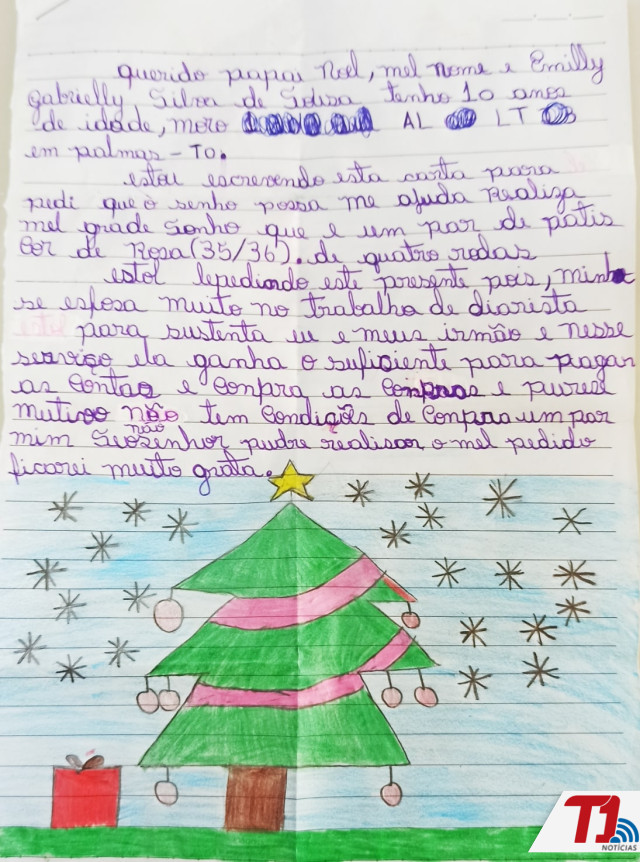 querido papai Noel, mel nome e Emilly
gabrielly Silva de Sousa tenho 10 anos
de idade, moro AL LT
em palmas - TO.
estou escrevendo esta carta para
pedi que o senho possa me ajuda Realiza
mel grade sonho que e um par de patis
Cor de Rosa (35/36). de quatro rodas
estol lepediondo este presente pois, minha
se esfosa muito no trabalho de diarista
para sustenta eu e meus irmão e nesse
serviço ela ganha o suficiente para pagar
as Contas e Conpra as Conpras e pures
mutivo não tem Condições de Conpra um par
mim Se o Senhor não pudre realisar o mel pedido
ficarei muito grata.
T1
NOTÍCIAS